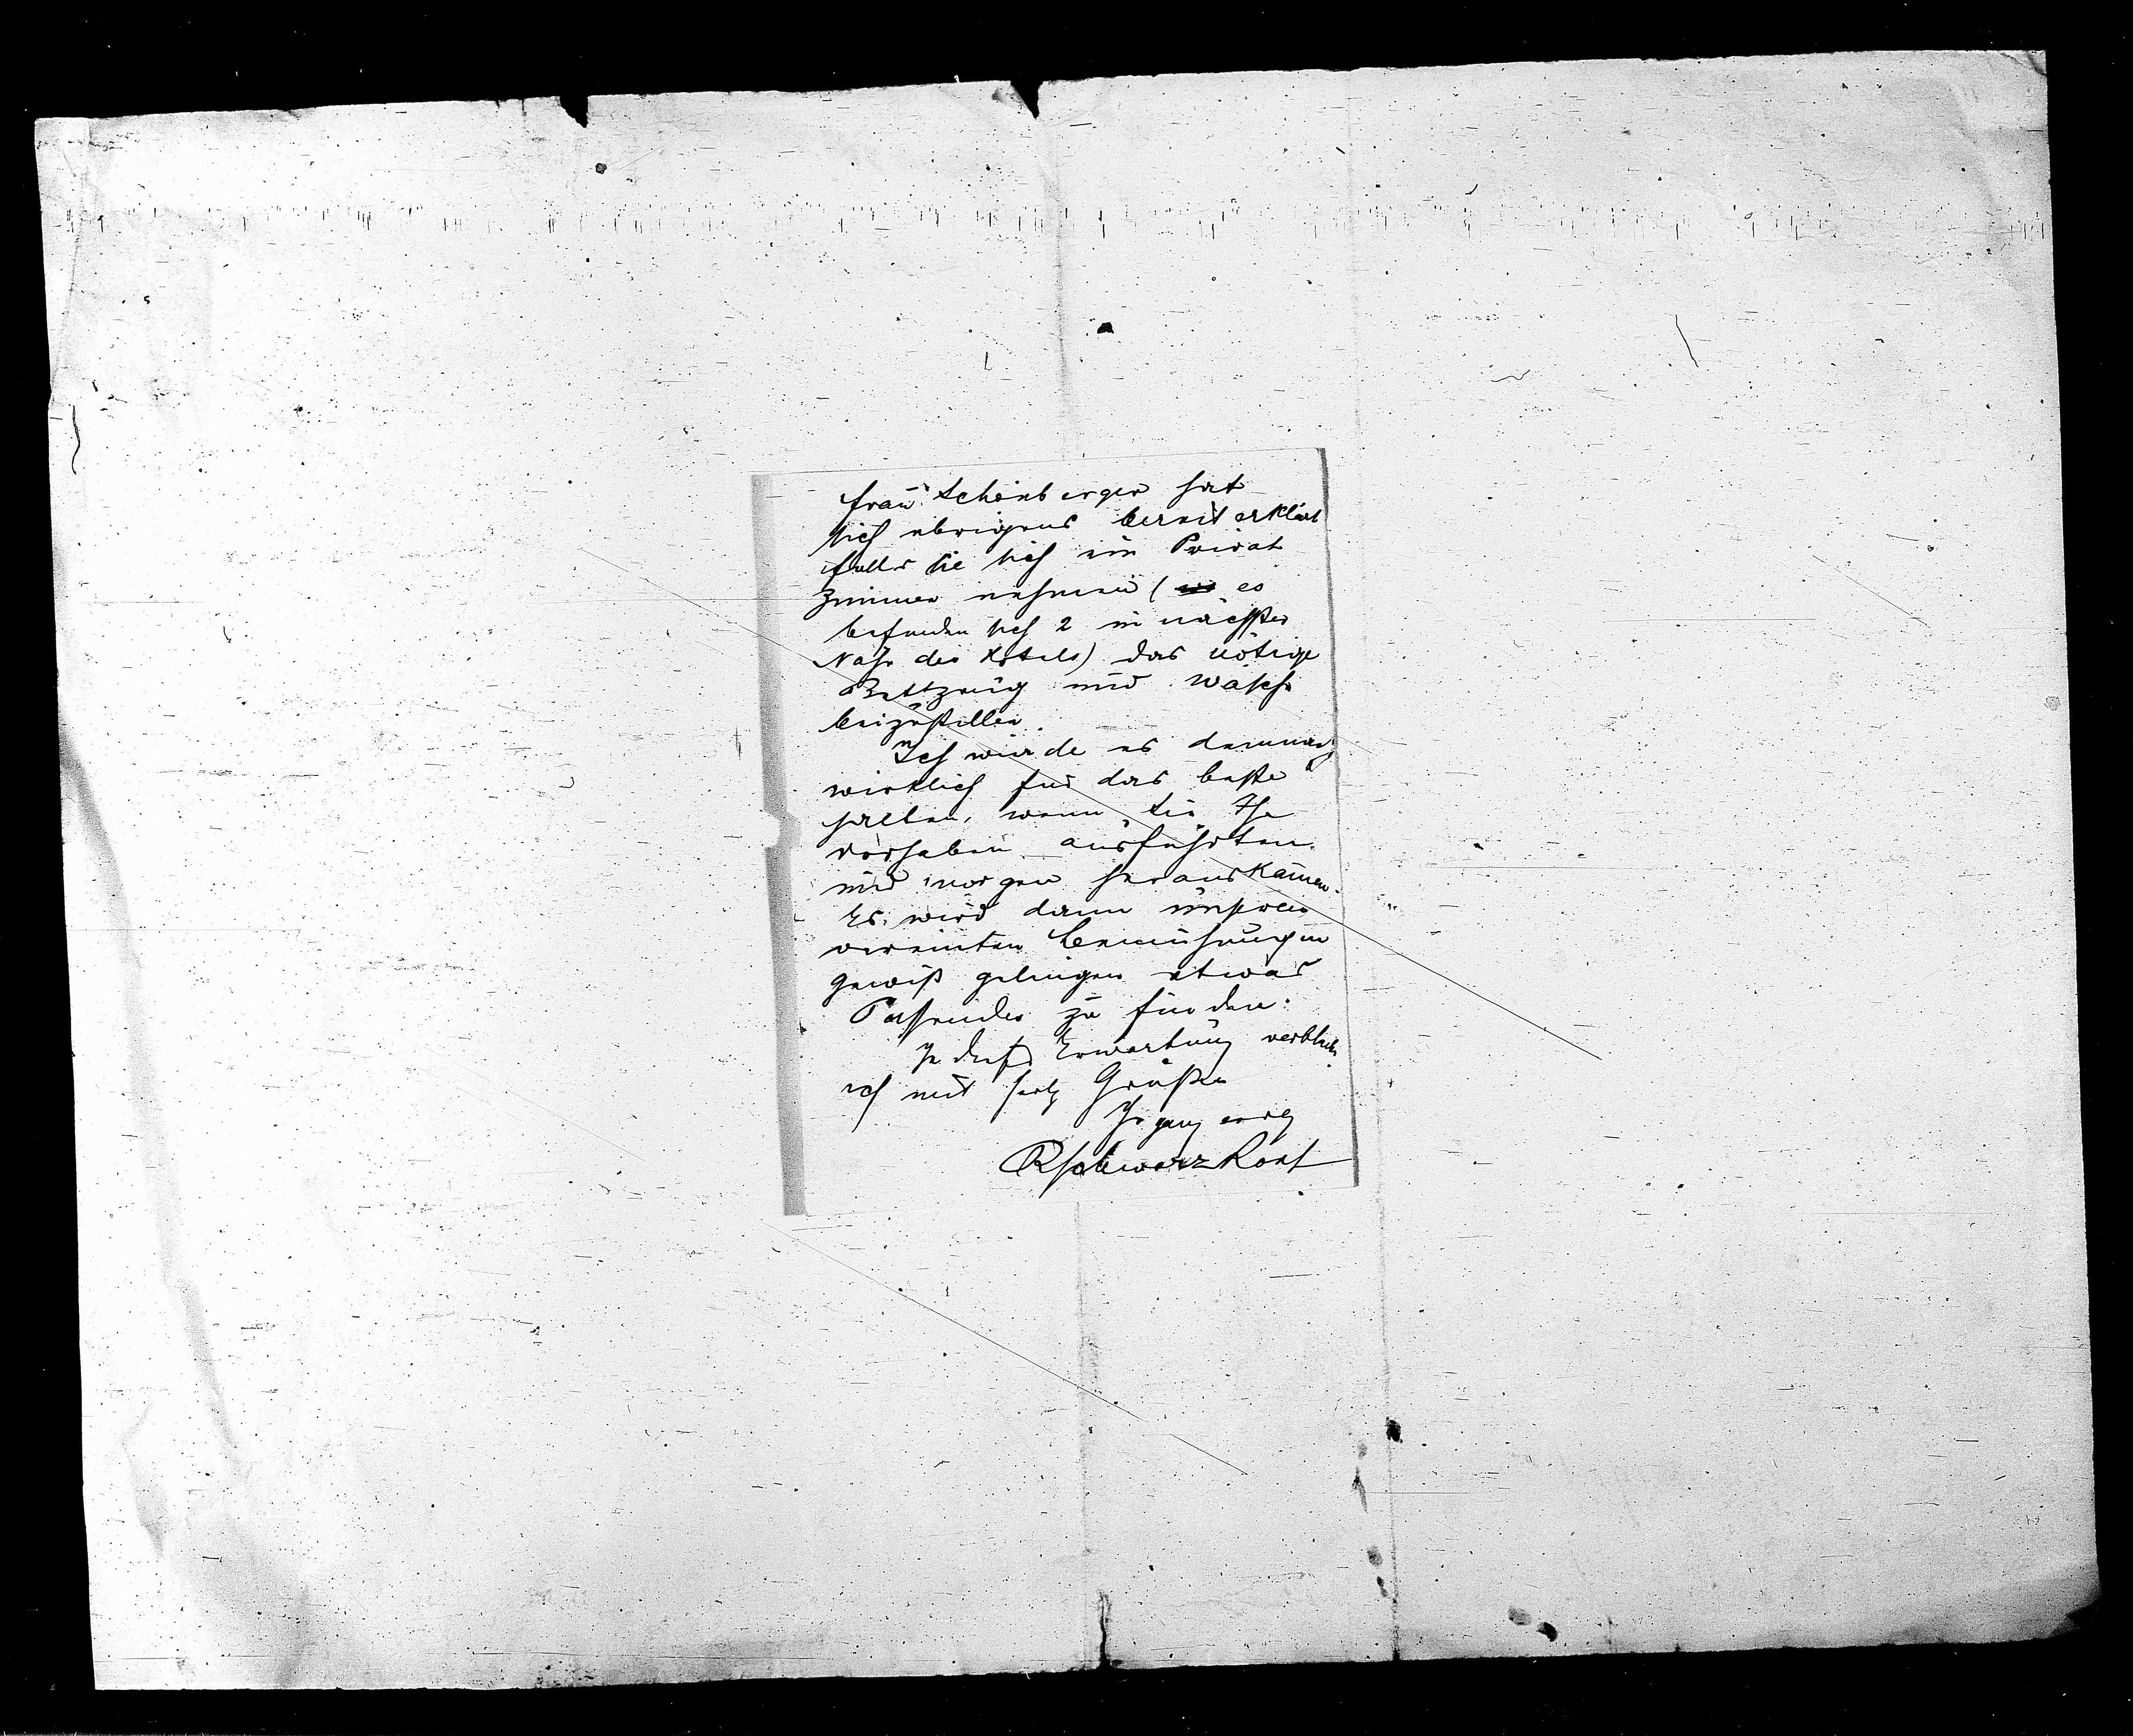 Frau Scheinberger hat
sich übrigens bereit erklärt
falls Sie sich ein Privat
Zimmer nehmen ( es
befinden sich 2 in nächster
Nähe des Hotels) das nötige
Bettzeug und Wäsche
beizustellen.
Ich würde es demnach
wirklich für das beste
halten, wenn Sie Ihr
Vorhaben ausführten
und morgen herauskämen.
Es wird dann unseren
vereinten Bemühungen
gewiß gelingen etwas
Passendes zu finden.
In dieser Erwartung verbleibe
ich mit herzl Grüßen
Ihr ganz
RSchwarzkopf